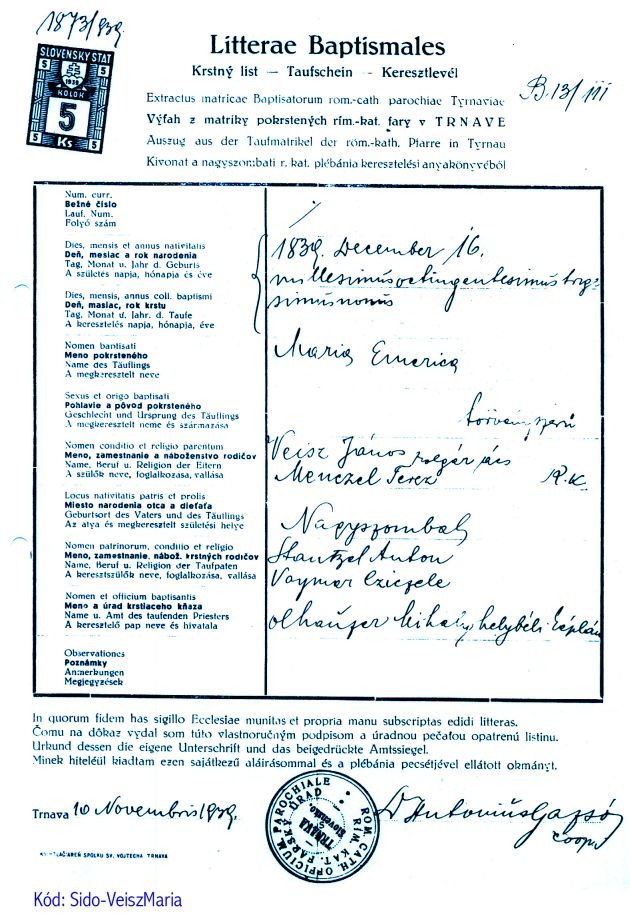 1873/939
SLOVENSKÝ ŠTÁT
5 5
1939
KOLOK
5
5 Ks 5
Litterae Baptismales
Krstný list — Taufschein — Keresztlevél
B. 13/III
Extractus matricae Baptisatorum rom.-cath. parochiae Tyrnaviae
Výťah z matriky pokrstených rím.-kat. fary v TRNAVE
Auszug aus der Taufmatrikel der röm.-kath. Pfarre in Tyrnau
Kivonat a nagyszombati r. kat. plébánia keresztelési anyakönyvéből
Num. curr.
Bežné číslo
Lauf. Num.
Folyó szám
Dies, mensis et annus nativitatis
Deň, mesiac a rok narodenia
Tag, Monat u. Jahr d. Geburts
A születés napja, hónapja és éve
1839. December 16.
Dies, mensis, annus coll. baptismi
Deň, masiac, rok krstu
Tag, Monat u. Jahr. d. Taufe
A keresztelés napja, hónapja, éve
millesimusoctingentesimustrige
simusnonus
Nomen baptisati
Meno pokrsteného
Name des Täuflings
A megkeresztelt neve
Maria Emerica
Sexus et origo baptisati
Pohlavie a pôvod pokrsteného
Geschlecht und Ursprung des Täuflings
A megkeresztelt neme és származása
törvényszerű
Nomen conditio et religio parentum
Meno, zamestnanie a náboženstvo rodičov
Name, Beruf u. Religion der Eltern
A szülők neve, foglalkozása, vallása
Veisz János polgár ács
Menczel Terez R. K.
Locus nativitatis patris et prolis
Miesto narodenia otca a dieťaťa
Geburtsort des Vaters und des Täuflings
Az atya és megkeresztelt születési helye
Nagyszombat
Nomen patrinorum, conditio et religio
Meno, zamestnanie, nábož. krstných rodičov
Name, Beruf u. Religion der Taufpaten
A keresztszülők neve, foglalkozása, vallása
Stantzel Anton
Vaymar
Nomen et officium baptisantis
Meno a úrad krstiaceho kňaza
Name u. Amt des taufenden Priesters
A keresztelő pap neve és hivatala
Mihaly helybéli Káplán
Observationes
Poznámky
Anmerkungen
Megjegyzések
In quorum fidem has sigillo Ecclesiae munitas et propria manu subscriptas edidi litteras.
Čomu na dôkaz vydal som túto vlastnoručným podpisom a úradnou pečaťou opatrenú listinu.
Urkund dessen die eigene Unterschrift und das beigedrückte Amtssiegel.
Minek hiteléül kiadtam ezen sajátkezű aláírásommal és a plébánia pecsétjével ellátott okmányt.
Trnava 10 Novembris 1939.
ROM. CATH. OFFICIUM PAROCHIALE
RÍM. KAT. FARSKÝ ÚRAD
TRNAVA
Slovensko
Dr Antonius
coop.
KNÍHTLAČIAREŇ SPOLKU SV. VOJTECHA TRNAVA
Kód: Sido-VeiszMaria